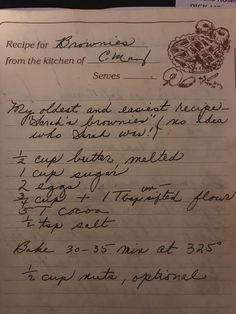 Recipe for Brownies
from the kitchen of C. May
Serves
"My oldest and easiest recipe—
"Sarah's brownies" (no idea
who Sarah was!)
½ cup butter, melted
1 cup sugar
2 eggs
un—
¾ cup + 1 Tbsp sifted flour
5 T cocoa
½ tsp salt
Bake 30-35 min at 325°
½ cup nuts, optional